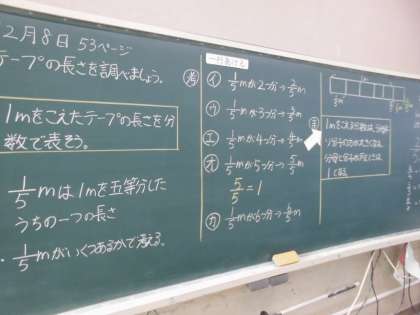 12月8日 53ページ
テープの長さを調べましょう。
1mをこえたテープの長さを分
数で表そう。
1/5 mは1mを五等分した
うちの一つの長さ
・1/5 mがいくつあるかで考える。
考
一行あける
イ 1/5 mが2つ分→2/5 m
ウ 1/5 mが3つ分→3/5 m
エ 1/5 mが4つ分→4/5 m
オ 1/5 mが5つ分→5/5 m
5/5 = 1
カ 1/5 mが6つ分→6/5 m
1mをこえる分数は、分母よ
り分子の方が大きくなる。
分母と分子が同じときは
1になる